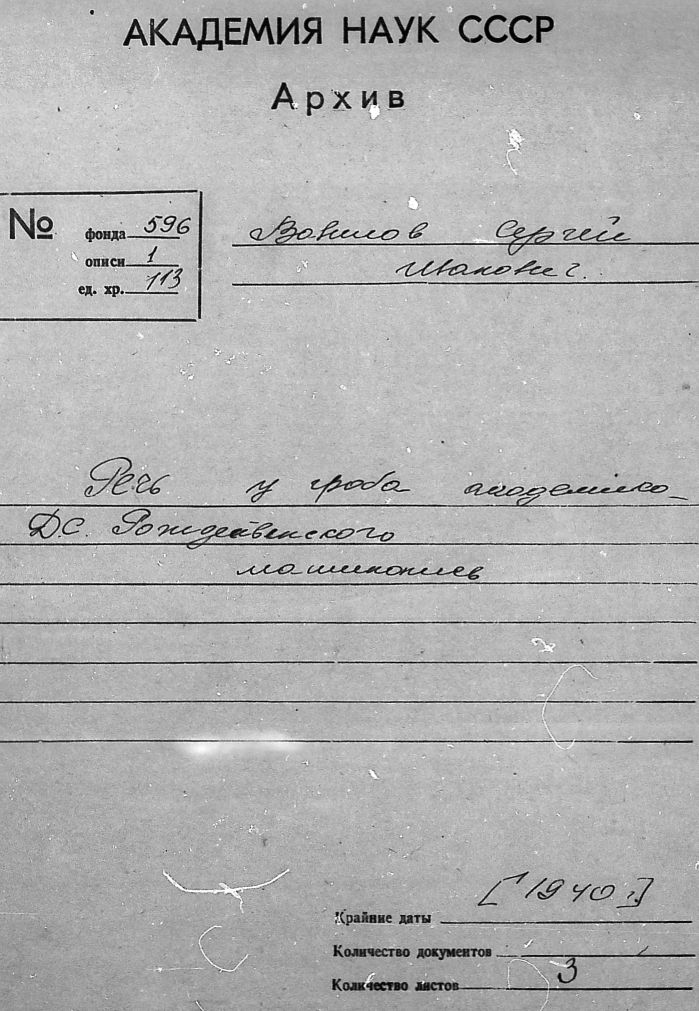 АКАДЕМИЯ НАУК СССР
Архив
№
фонда 596
описи 1
ед. хр. 113
Вавилов Сергей
Иванович.
Речь у гроба академика
Д.С. Рождественского
машинопись
[1940 г.]
Крайние даты
Количество документов
Количество листов 3